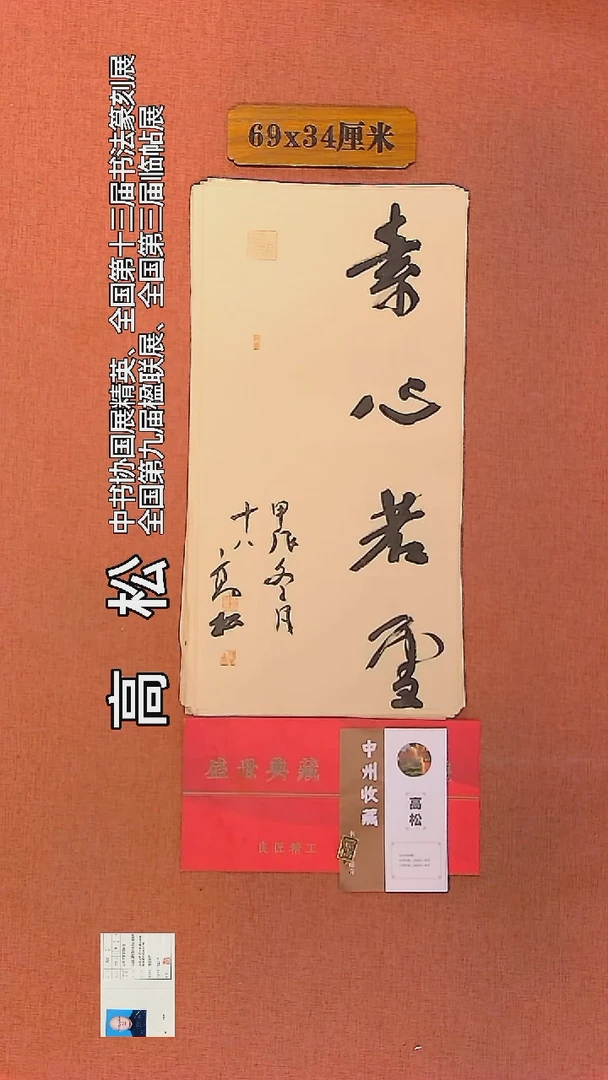 69x34厘米
素心若雪
甲辰冬月
十八
高松
高 松
中书协国展精英、全国第十三届书法篆刻展
全国第九届楹联展、全国第三届临帖展
盛世典藏
良匠精工
中州收藏
高松